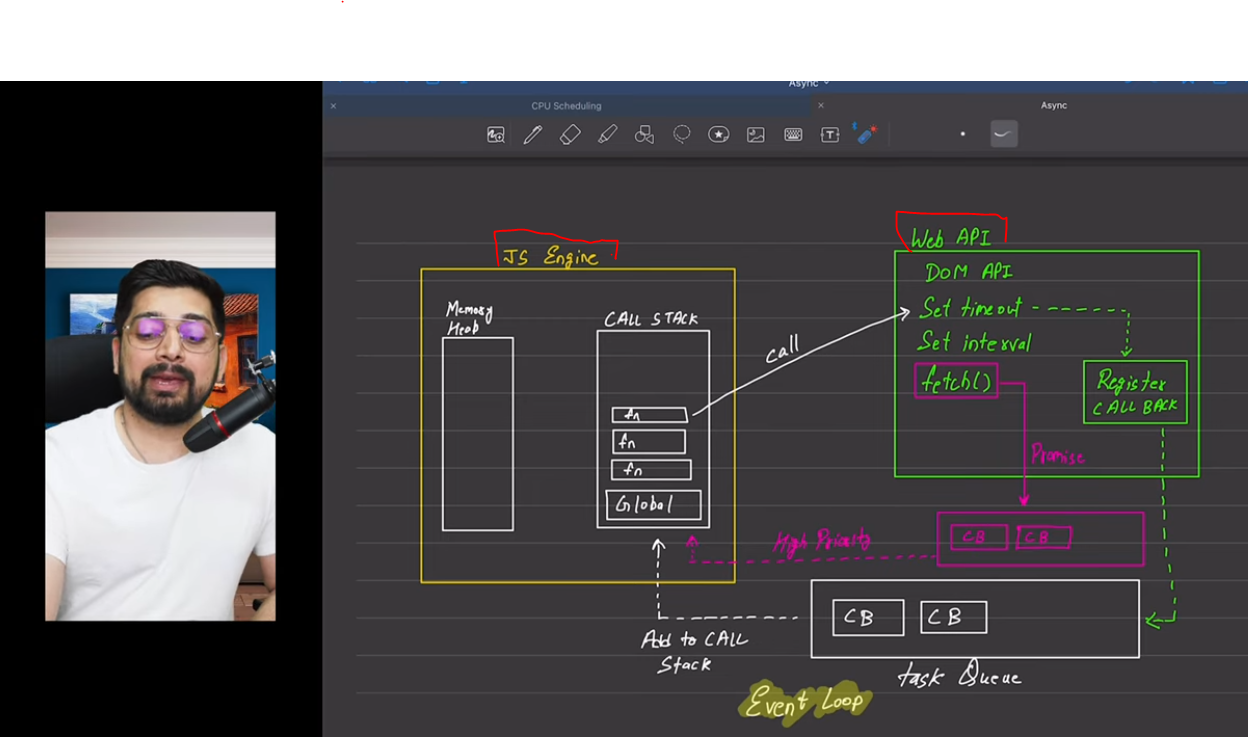 Async
CPU Scheduling
Async
T
JS Engine
Memory
Heab
CALL STACK
fn
fn
fn
Global
call
Web API
DOM API
Set timeout
Set interval
fetch()
Register
CALL BACK
Promise
High Priority
CB CB
CB CB
Add to CALL
Stack
task Queue
Event Loop